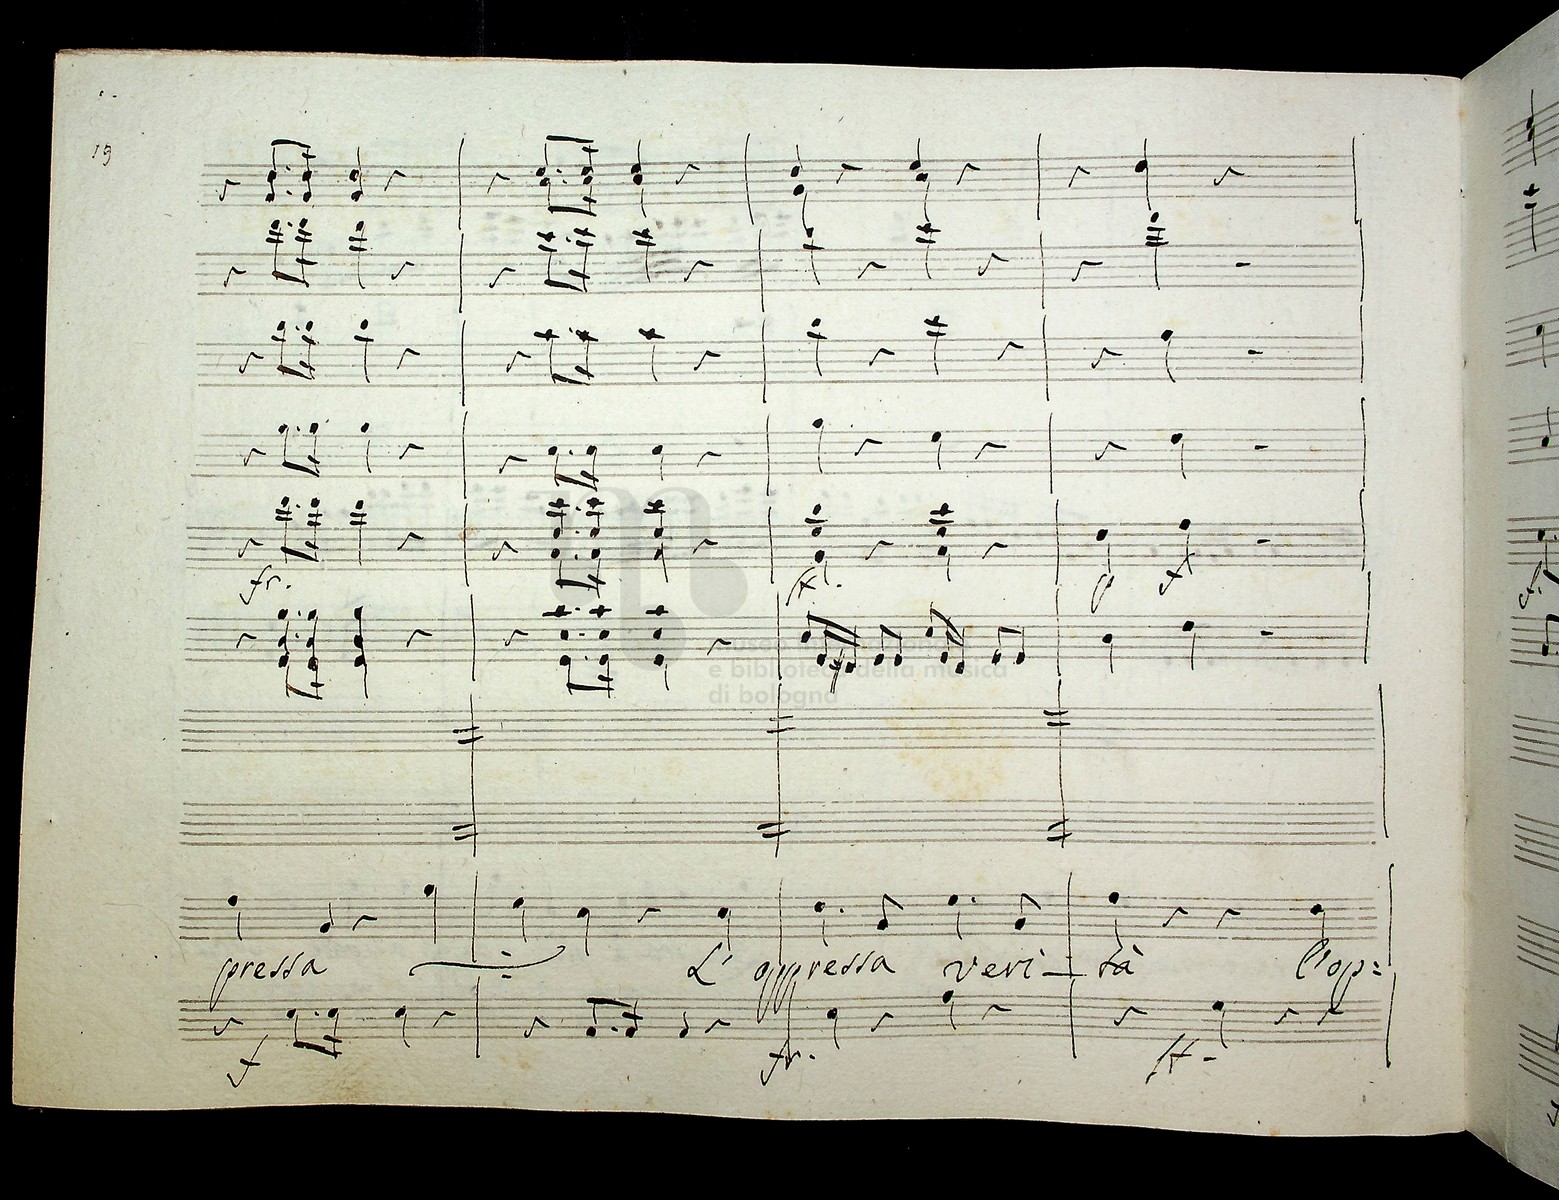 19
fr.
p f
museo internazionale
e biblioteca della musica
di bologna
pressa L'oppressa veri-tà l'op=
f fr.